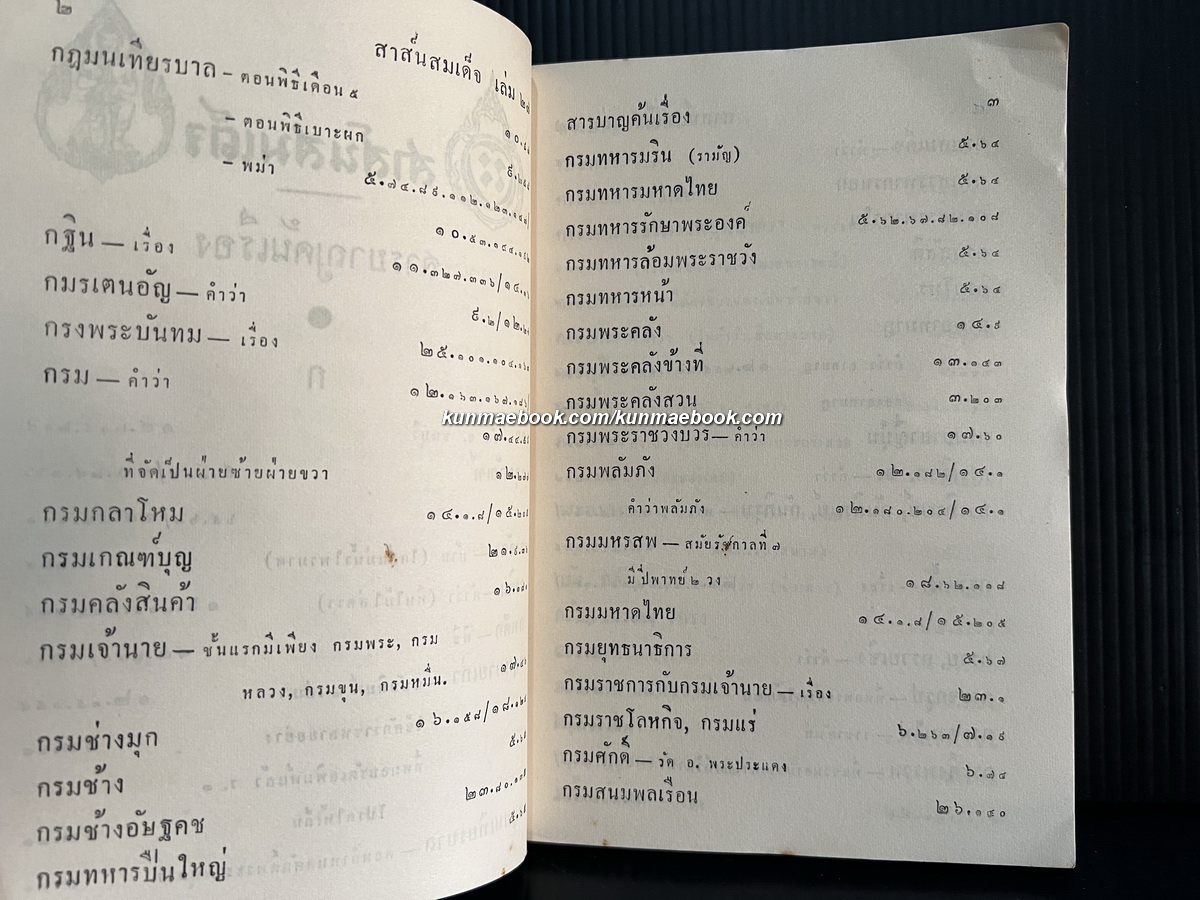 ๒
สาส์นสมเด็จ เล่ม ๒๗
กฎมนเทียรบาล – ตอนพิธีเดือน ๕
– ตอนพิธีเบาะผก
– พม่า
๕.๗๔.๘๙.๑๑๒.๑๒๓.
กฐิน — เรื่อง ๑๐.๕๓.
กมรเตนอัญ — คำว่า ๑๑.๓๒๗.๓๓๖/๑๔.
กรงพระบันทม — เรื่อง ๙.๒/๑๒.
กรม — คำว่า ๒๕.๑๐๑.๑๐๔.
๑๒.๑๖๓.๑๖๗.
๑๗.
ที่จัดเป็นฝ่ายซ้ายฝ่ายขวา ๑๒.
กรมกลาโหม ๑๔.๑.๘/๑๕.
กรมเกณฑ์บุญ ๒๑.
กรมคลังสินค้า ๑๖.
กรมเจ้านาย — ชั้นแรกมีเพียง กรมพระ, กรม
หลวง, กรมขุน, กรมหมื่น. ๑๗.
กรมช่างมุก ๑๖.๑๕๘/๑๘.
กรมช้าง ๕.
กรมช้างอัษฐคช ๒๓.๘๐.
กรมทหารปืนใหญ่ ๕.
๓
สารบาญค้นเรื่อง
กรมทหารมริน (รามัญ) ๕.๖๔
กรมทหารมหาดไทย ๕.๖๔
กรมทหารรักษาพระองค์ ๕.๖๒.๖๗.๘๒.๑๐๘
กรมทหารล้อมพระราชวัง ๕.๖๔
กรมทหารหน้า ๕.๖๔
กรมพระคลัง ๑๔.๙
กรมพระคลังข้างที่ ๑๓.๑๔๓
กรมพระคลังสวน ๓.๒๐๓
กรมพระราชวังบวร — คำว่า ๑๗.๖๐
กรมพลัมภัง ๑๒.๑๘๒/๑๔.๑
คำว่าพลัมภัง ๑๒.๑๘๐.๒๐๔/๑๔.๑
กรมมหรสพ — สมัยรัชกาลที่ ๗
มีปี่พาทย์ ๒ วง ๑๘.๖๒.๑๑๘
กรมมหาดไทย ๑๔.๑.๘/๑๕.๒๐๕
กรมยุทธนาธิการ ๕.๖๗
กรมราชการกับกรมเจ้านาย — เรื่อง ๒๓.๑
กรมราชโลหกิจ, กรมแร่ ๖.๒๖๓/๗.๑๙
กรมศักดิ์ — วัด อ. พระประแดง ๖.๗๔
กรมสนมพลเรือน ๒๖.๑๔๐
kunmaebook.com/kunmaebook.com